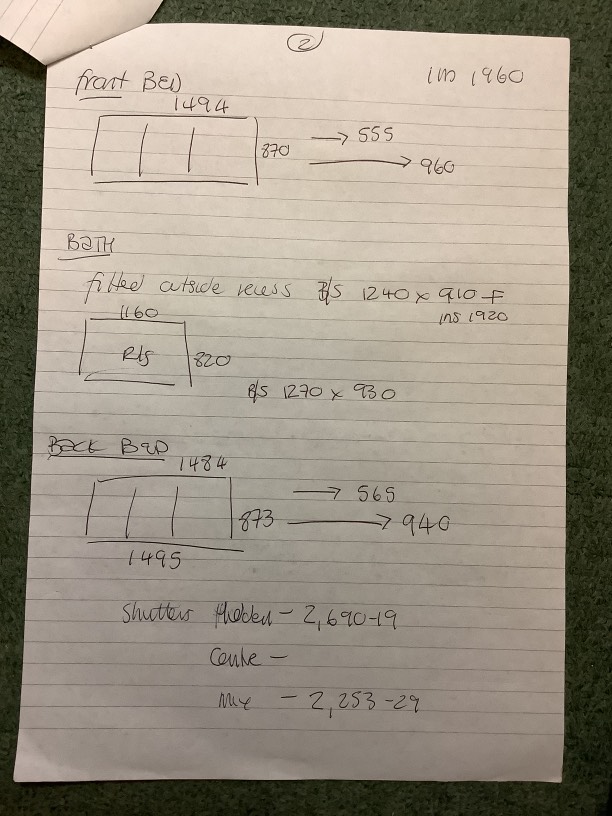 2
front BED
1m 1960
1494
870
→ 555
→ 960
BATH
fitted outside recess B/S 1240 x 910 F
ins 1920
1160
R/S
820
B/S 1270 x 930
BACK BED
1484
873
→ 565
→ 940
1495
Shutters Hidden - 2,690-19
Centre -
Mix - 2,253-29